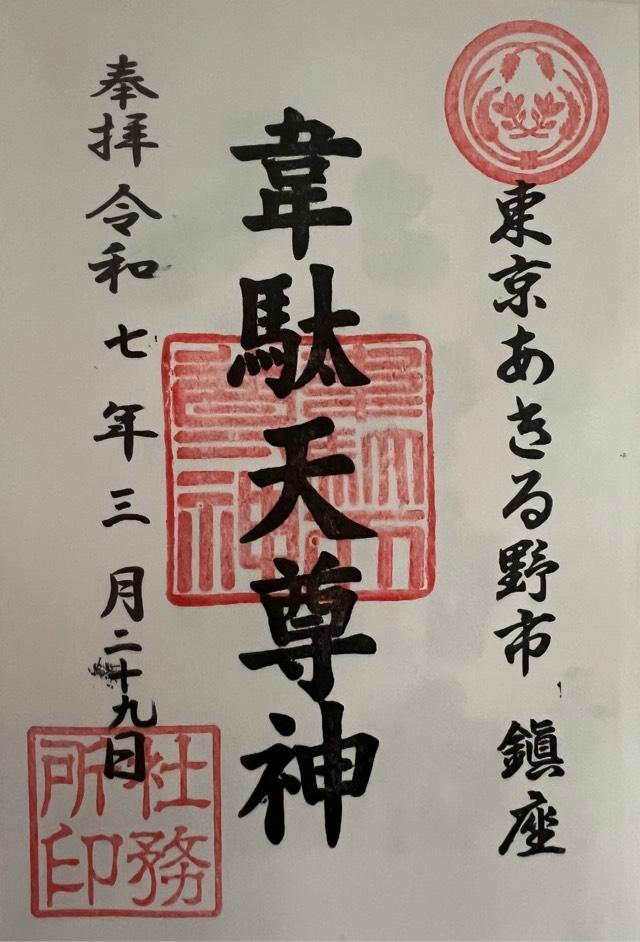 東京あきる野市 鎮座
韋駄天尊神
奉拝 令和七年三月二十九日
社務所印